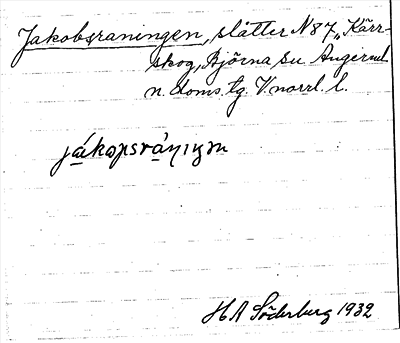 Jakobsraningen, slåtter N 87, Kärr-
skog, Björna sn Ångerml
n. doms. tg. V norrl. l.
jákopsrániŋən
HA Söderberg 1932